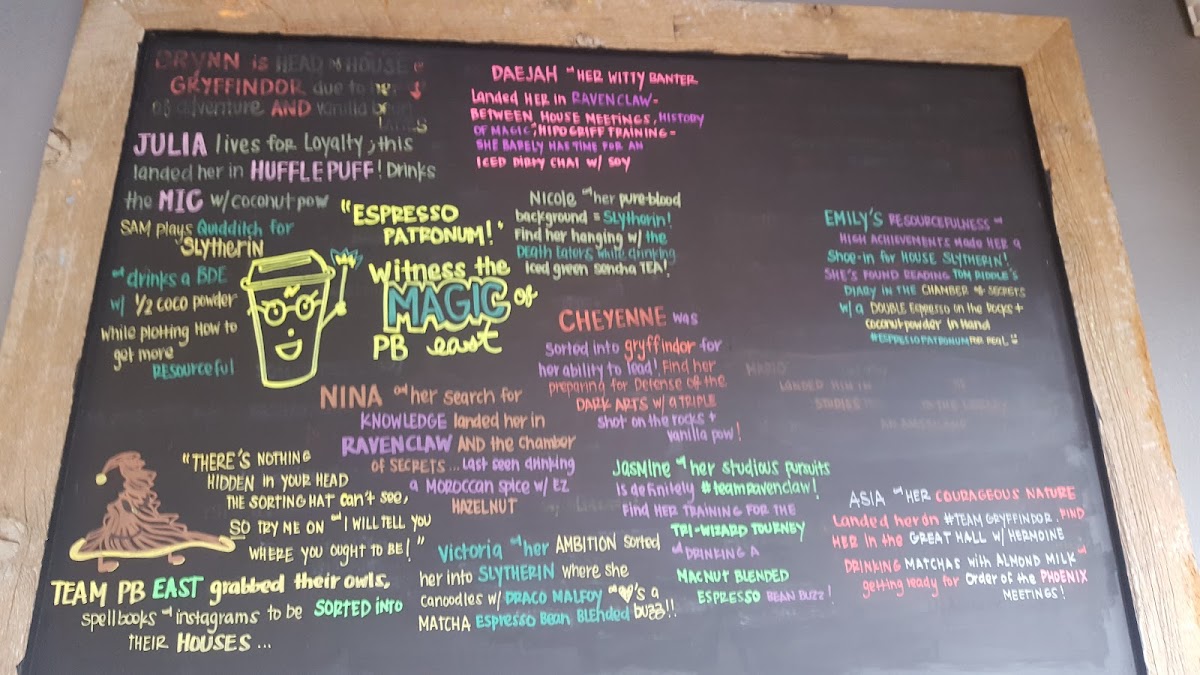 BRYNN is HEAD of HOUSE
GRYFFINDOR due to her
of adventure AND vanilla bean
JULIA lives for Loyalty; this
landed her in HUFFLEPUFF! Drinks
the MIC w/ coconut pow
SAM plays Quidditch for
SLYTHERIN
and drinks a BDE
w/ 1/2 coco powder
while plotting How to
get more
RESOURCEFUL
"ESPRESSO
PATRONUM!"
Witness the
MAGIC of
PB east
DAEJAH and HER WITTY BANTER
Landed HER in RAVENCLAW-
BETWEEN HOUSE MEETINGS, HISTORY
OF MAGIC, HIPOGRIFF TRAINING-
SHE BARELY HAS TIME FOR AN
ICED DIRTY CHAI W/ SOY
Nicole and her pure-blood
background = Slytherin!
Find her hanging w/ the
Death Eaters while drinking
Iced green sencha TEA!
CHEYENNE was
sorted into gryffindor for
her ability to lead! Find her
preparing for Defense of the
DARK ARTS w/ a TRIPLE
shot on the rocks +
vanilla pow!
EMILY'S RESOURCEFULNESS and
HIGH ACHIEVEMENTS MADE HER A
Shoe-in for HOUSE SLYTHERIN!
SHE'S FOUND READING TOM RIDDLE'S
DIARY IN THE CHAMBER of SECRETS
w/ a DOUBLE Espresso on the Rocks +
coconut powder in Hand
#ESPRESSOPATRONUM FOR REAL
MARIO
LANDED HIM IN
STUDIES TO THE LIBRARY
AN AMERICANO
NINA and her search for
KNOWLEDGE landed her in
RAVENCLAW AND the Chamber
of SECRETS... Last seen drinking
a MOROCCAN SPICE w/ EZ
HAZELNUT
"THERE'S NOTHING
HIDDEN IN YOUR HEAD
THE SORTING HAT can't see,
SO TRY ME ON and I WILL TELL YOU
WHERE YOU OUGHT TO BE!"
TEAM PB EAST grabbed their owls,
spellbooks and instagrams to be SORTED INTO
THEIR HOUSES...
Victoria and her AMBITION sorted
her into SLYTHERIN where she
canoodles w/ DRACO MALFOY and ♥'s a
MATCHA Espresso Bean Blended buzz!!
Jasmine and her studious pursuits
is definitely #teamravenclaw!
FIND HER TRAINING FOR THE
TRI-WIZARD TOURNEY
and DRINKING A
MACNUT BLENDED
ESPRESSO BEAN BUZZ!
ASIA and HER COURAGEOUS NATURE
Landed her on #TEAM GRYFFINDOR. FIND
HER In the GREAT HALL w/ HERMOINE
DRINKING MATCHAS with ALMOND MILK and
getting ready for Order of the PHOENIX
MEETINGS!